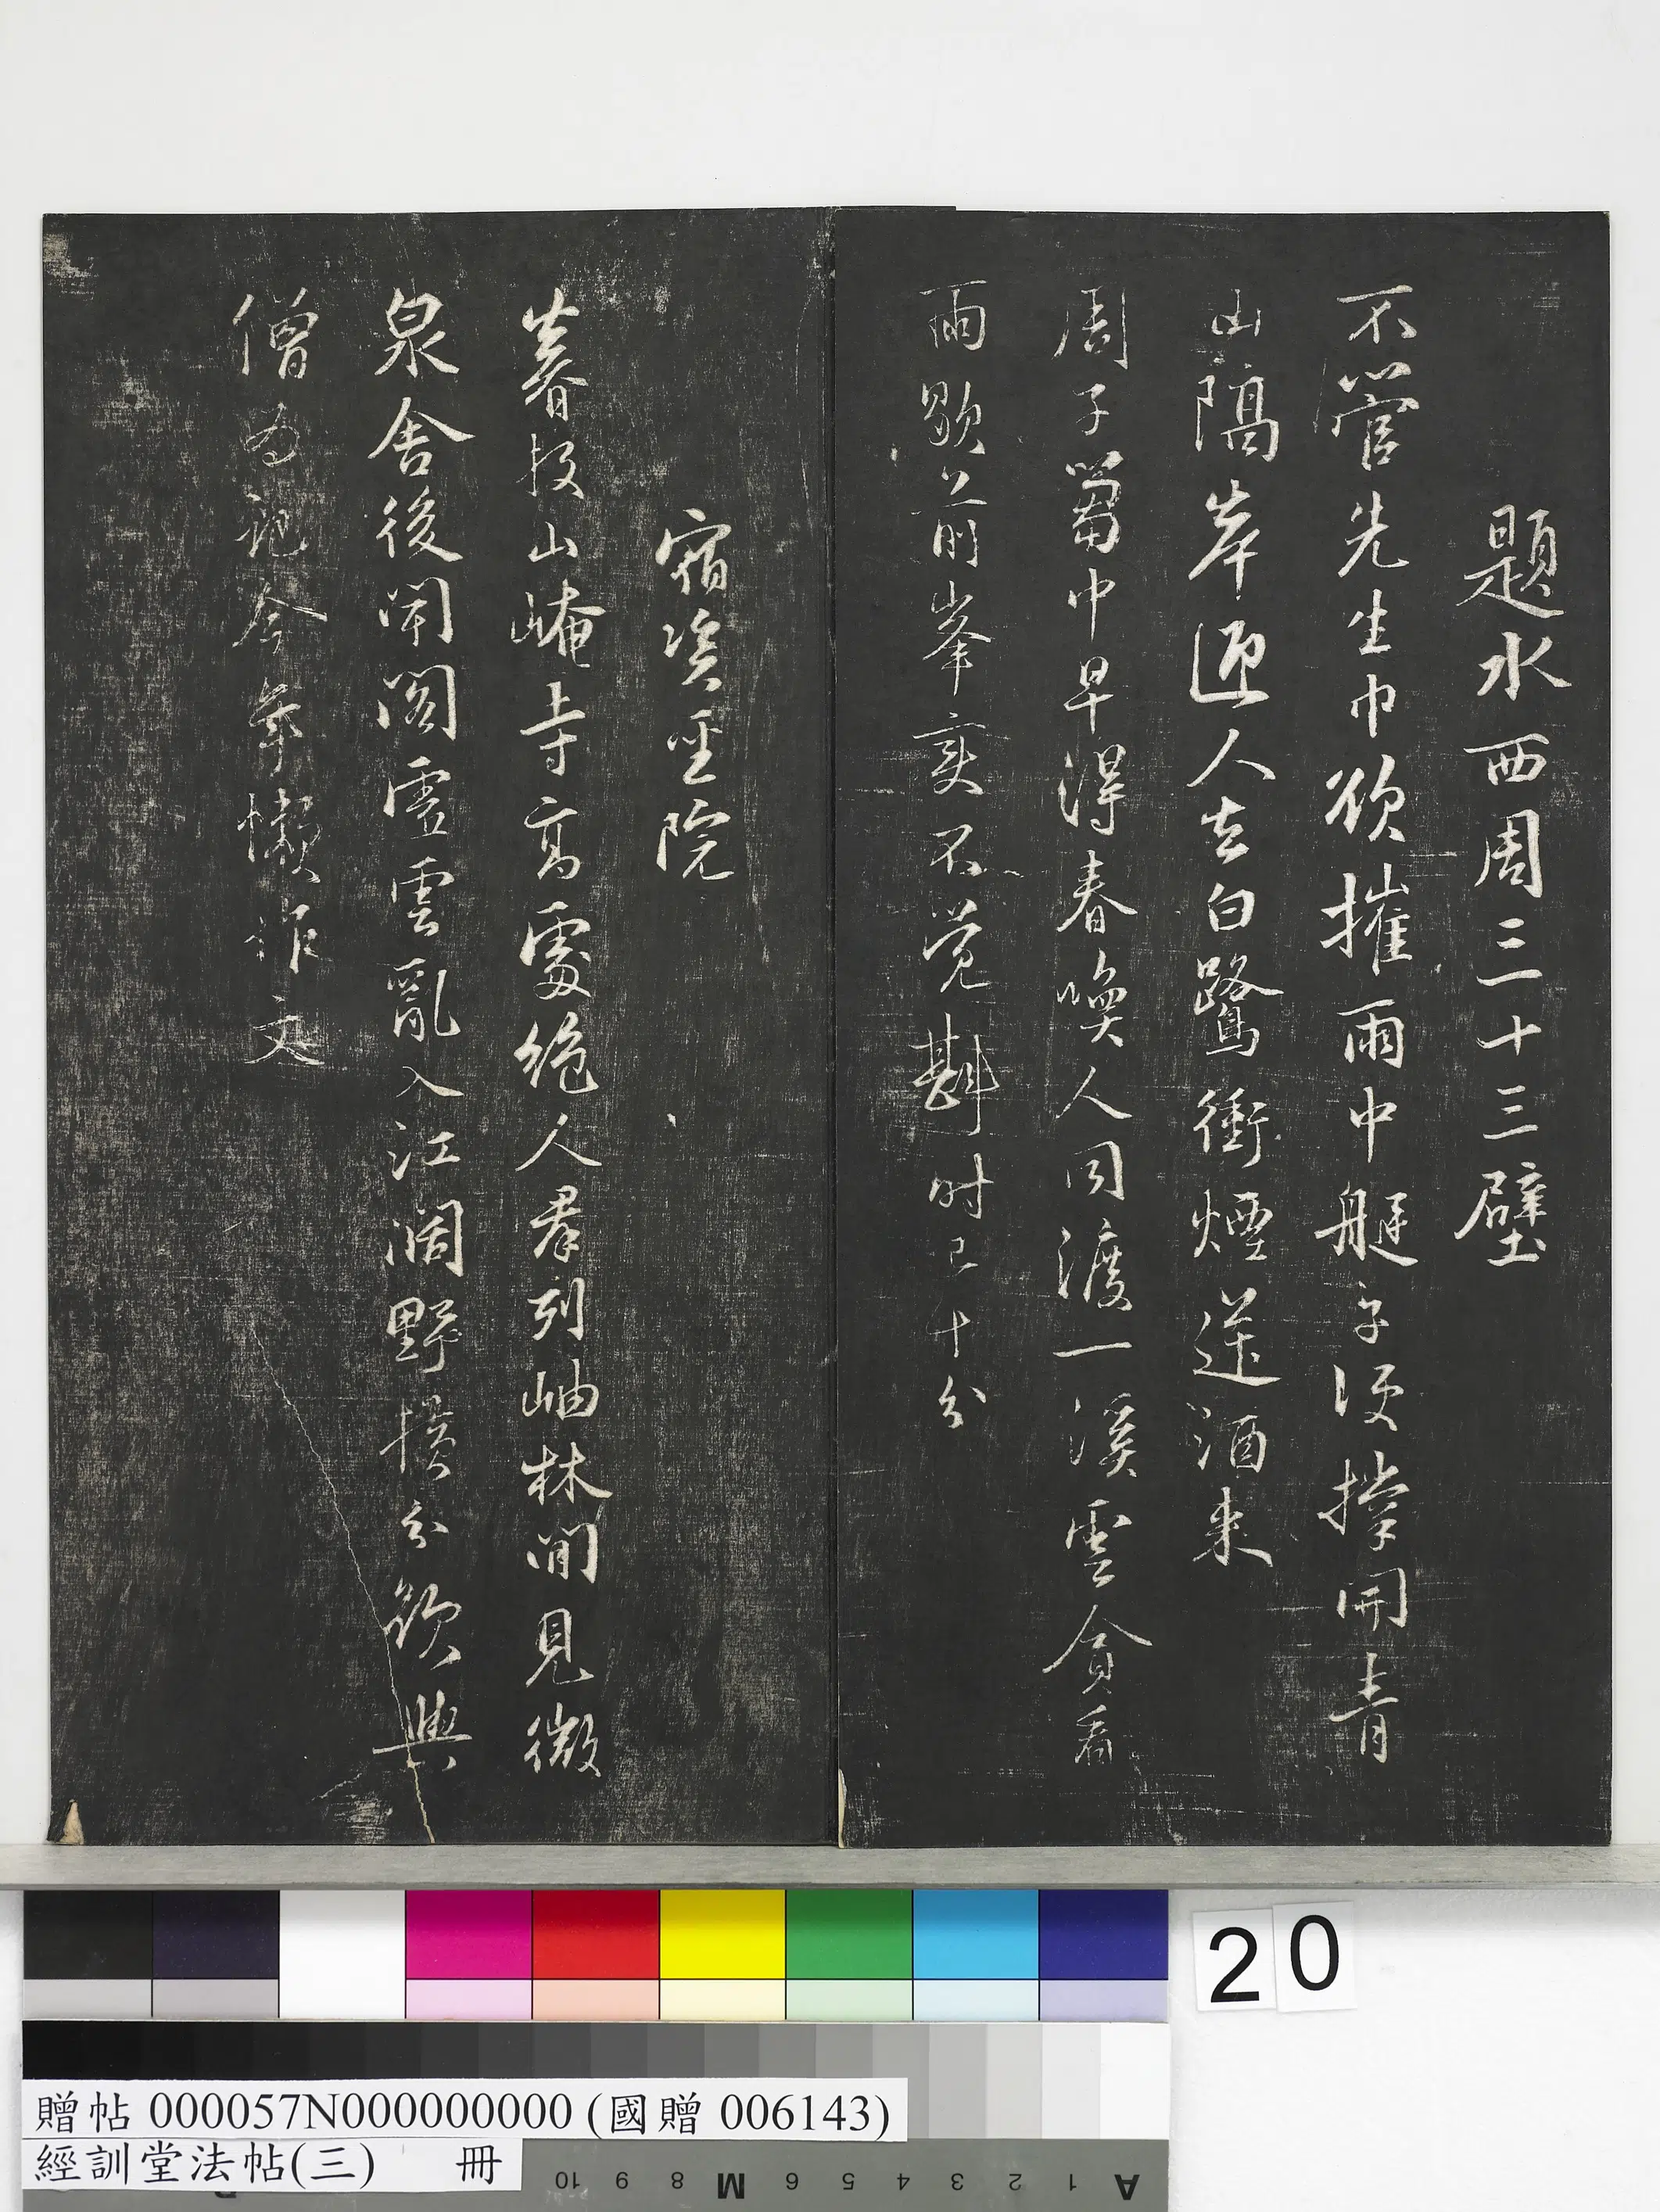 題水西周三十三壁
不管先生巾欲摧雨中艇子便撐開青
山隔岸迎人去白鷺衝煙送酒來
周子篘中早得春喚人同渡一溪雲貪看
雨歇前峯變不覺斟時已十分
宿資聖院
暮投山崦寺高處絕人羣列岫林間見微
泉舍後聞閣虛雲亂入江闊野橫分欲與
僧為記今年懶作文
20
贈帖 000057N000000000 (國贈 006143)
經訓堂法帖(三) 冊
10 9 8 M 6 5 4 3 2 1 A